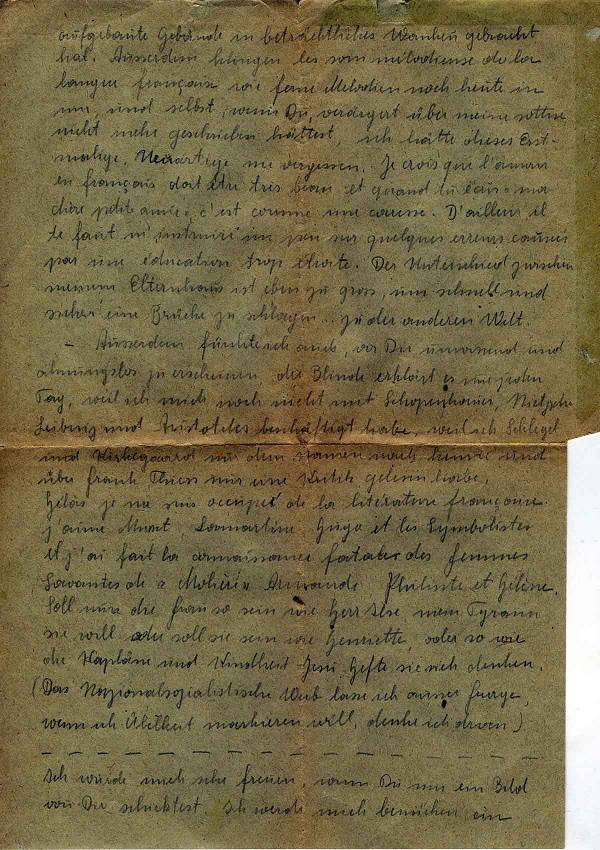 aufgebaute Gebäude in beträchtliches Wanken gebracht
hat. Ausserdem klingen les son mélodiense de la
langue française wie feine Melodien noch heute in
mir, und selbst, wenn Du, verärgert über meine
nicht mehr geschrieben hättest, ich hätte dieses Erst-
malige, Neuartige nie vergessen. Je crois que l'amour
en français doit être très beau et quand tu écris "ma
chère petite amie", c'est comme une caresse. D'ailleur, il
te faut m'instruire un peu sur quelques erreurs causés
par une éducation trop étroite. Der Unterschied zwischen
meinem Elternhaus ist eben zu gross, um schnell und
sicher eine Brücke zu schlagen... zu der anderen Welt.
– Ausserdem fürchte ich auch, vor Dir unwissend und
ahnungslos zu erscheinen, die Blinde erklärt es mir jeden
Tag, weil ich mich noch nicht mit Schopenhauer, Nietzsche
Leibniz und Aristoteles beschäftigt habe, weil ich Schlegel
und Kirkegaard nur dem Namen nach kenne und
über Frank Thiess nur eine Kritik gelesen habe.
Hélas je me suis occupée de la literature française
j'aime Muset, Laamartine, Hugo et les Symbolistes
Et j'ai fait la connaissance fatales des femmes
Savantes de "Molière" Armande Philinte et Hélène.
Soll nun die Frau so sein wie Herr Ilse mein Tyrann
sie will oder soll sie sein wie Henriette, oder so wie
die Kapläne und Kindheit-Jesu Hefte sie sich denken.
(Das Nazionalsozialistische Weib lasse ich aussen,
wenn ich Übelkeit markieren will, denke ich daran)
Ich würde mich sehr freuen, wenn Du mir ein Bild
von Dir schicktest. Ich werde mich bemühen, ein